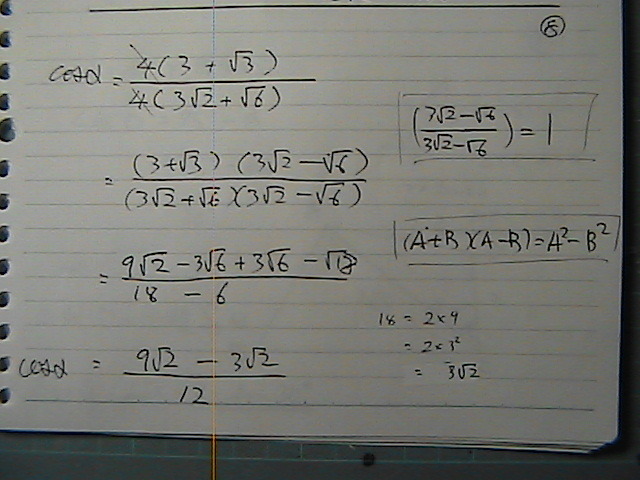 ⑧
cosα = 4(3 + √3) / 4(3√2 + √6)
(3√2 - √6 / 3√2 - √6) = 1
= (3+√3) (3√2 - √6) / (3√2 + √6)(3√2 - √6)
(A+B)(A-B) = A² - B²
= 9√2 - 3√6 + 3√6 - √18 / 18 - 6
18 = 2×9
= 2×3²
= 3√2
cosα = 9√2 - 3√2 / 12